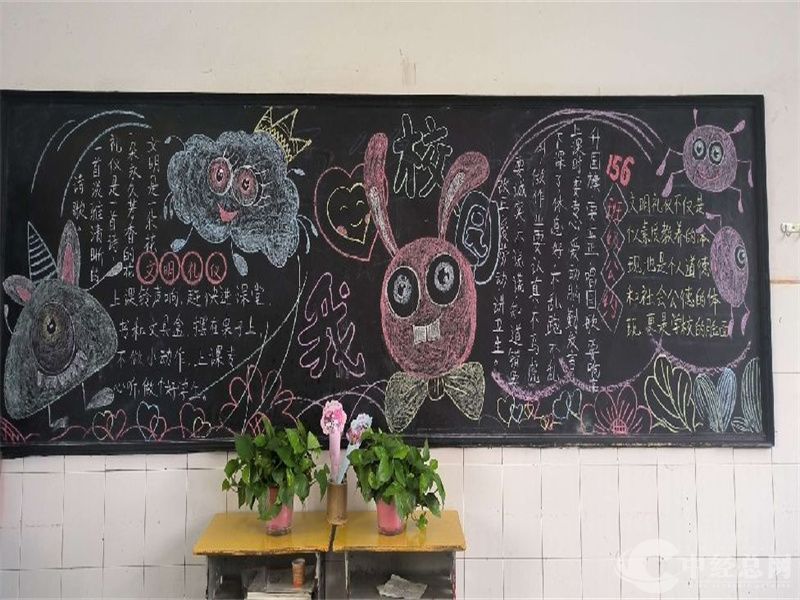 文明是一朵花
一朵永久芳香的花
礼仪是一首诗
一首淡雅清晰的
诗歌
文明礼仪
上课铃声响,赶快进课堂
书和文具盒,摆在桌子上
不做小动作,上课专
心听,做个好学生。
我
榜
升国旗 要立正 唱国歌 要响亮
上课时 要专心 爱动脑 勤发言
下课了 休息好 不乱跑 不乱
做作业 要认真 不马虎
要诚实
爱劳动 讲卫生
156
班级公约
文明礼仪不仅是
个人素质教养的体
现,也是个人道德
和社会公德的体
现,更是学校的脸面
中经总网